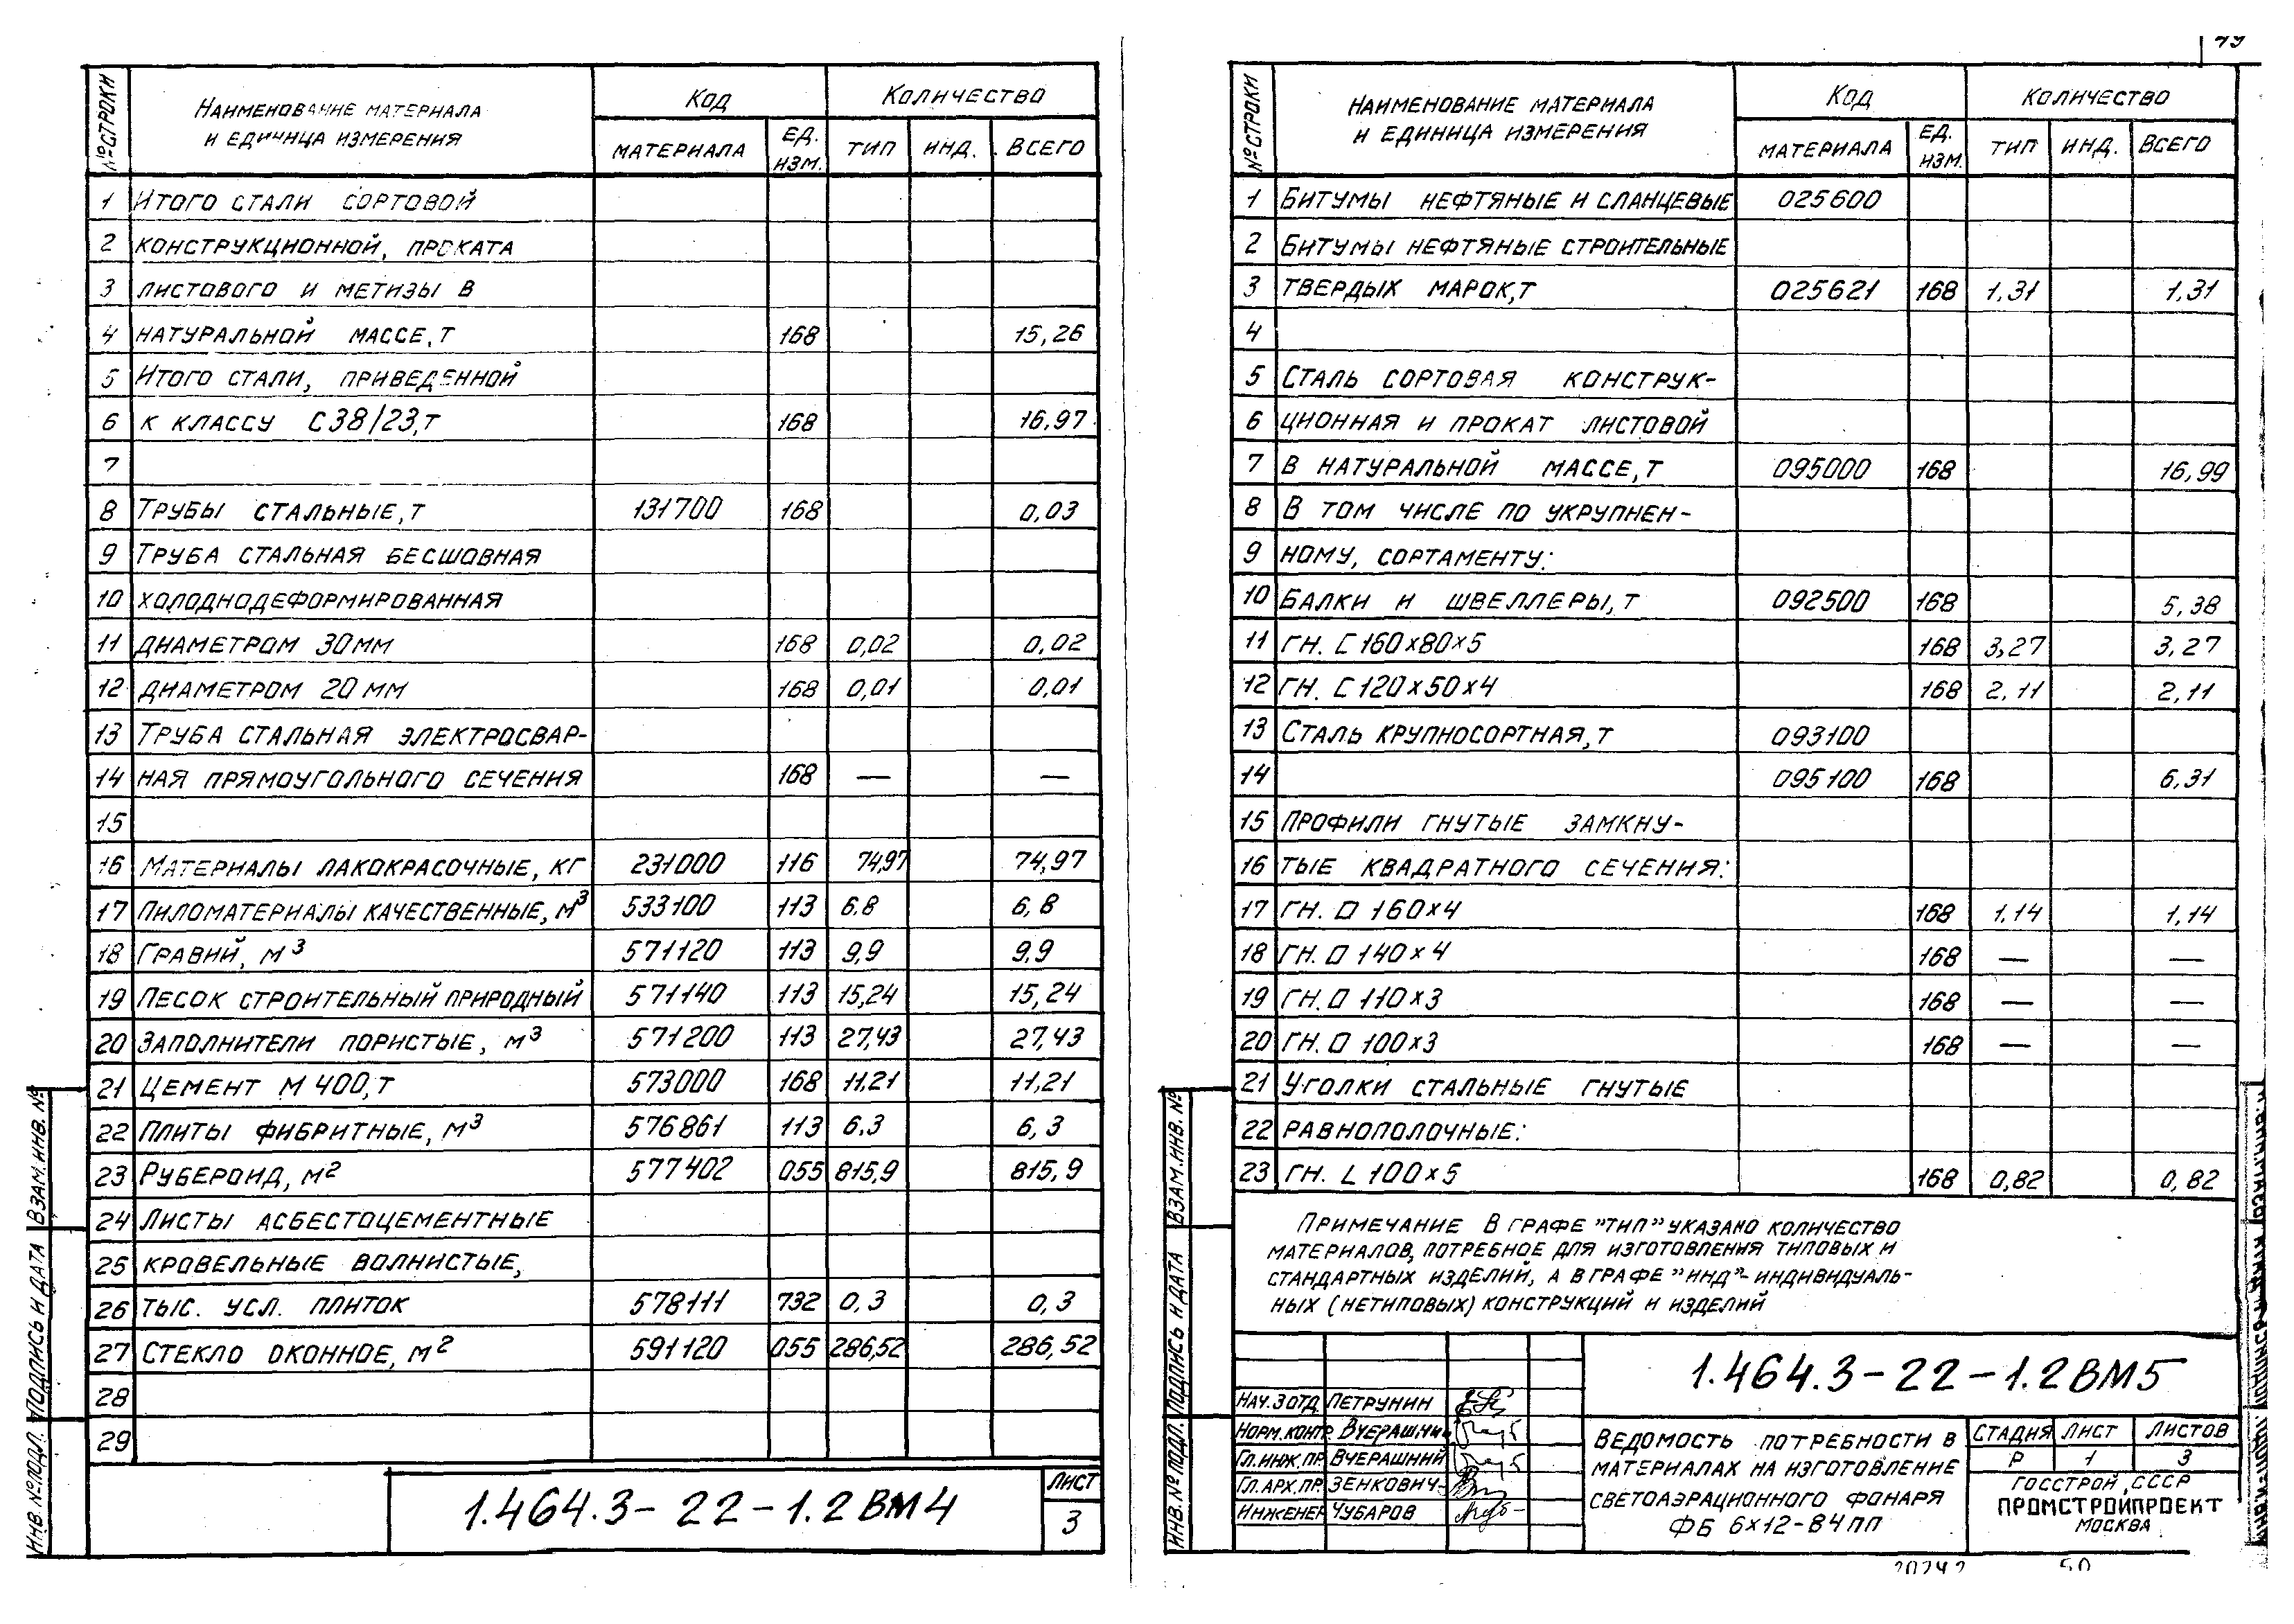 № СТРОКИ НАИМЕНОВАНИЕ МАТЕРИАЛА И ЕДИНИЦА ИЗМЕРЕНИЯ КОД КОЛИЧЕСТВО
МАТЕРИАЛА ЕД. ИЗМ. ТИП ИНД. ВСЕГО
1 ИТОГО СТАЛИ СОРТОВОЙ
2 КОНСТРУКЦИОННОЙ, ПРОКАТА
3 ЛИСТОВОГО И МЕТИЗЫ В
4 НАТУРАЛЬНОЙ МАССЕ, Т 168 15,26
5 ИТОГО СТАЛИ, ПРИВЕДЕННОЙ
6 К КЛАССУ С38/23, Т 168 16,97
7
8 ТРУБЫ СТАЛЬНЫЕ, Т 131700 168 0,03
9 ТРУБА СТАЛЬНАЯ БЕСШОВНАЯ
10 ХОЛОДНОДЕФОРМИРОВАННАЯ
11 ДИАМЕТРОМ 30 ММ 168 0,02 0,02
12 ДИАМЕТРОМ 20 ММ 168 0,01 0,01
13 ТРУБА СТАЛЬНАЯ ЭЛЕКТРОСВАР-
14 НАЯ ПРЯМОУГОЛЬНОГО СЕЧЕНИЯ 168 — —
15
16 МАТЕРИАЛЫ ЛАКОКРАСОЧНЫЕ, КГ 231000 116 74,97 74,97
17 ПИЛОМАТЕРИАЛЫ КАЧЕСТВЕННЫЕ, М³ 533100 113 6.8 6,8
18 ГРАВИЙ, М³ 571120 113 9,9 9,9
19 ПЕСОК СТРОИТЕЛЬНЫЙ ПРИРОДНЫЙ 571140 113 15,24 15,24
20 ЗАПОЛНИТЕЛИ ПОРИСТЫЕ, М³ 571200 113 27,43 27,43
21 ЦЕМЕНТ М 400, Т 573000 168 11.21 11,21
22 ПЛИТЫ ФИБРИТНЫЕ, М³ 576861 113 6.3 6,3
23 РУБЕРОИД, М² 577402 055 815,9 815,9
24 ЛИСТЫ АСБЕСТОЦЕМЕНТНЫЕ
25 КРОВЕЛЬНЫЕ ВОЛНИСТЫЕ,
26 ТЫС. УСЛ. ПЛИТОК 578111 732 0,3 0,3
27 СТЕКЛО ОКОННОЕ, М² 591120 055 286,52 286,52
28
29
1.464.3-22-1.2 ВМ4
ЛИСТ
3
ИНВ. № ПОДЛ. ПОДПИСЬ И ДАТА ВЗАМ. ИНВ. №
49
№ СТРОКИ НАИМЕНОВАНИЕ МАТЕРИАЛА И ЕДИНИЦА ИЗМЕРЕНИЯ КОД КОЛИЧЕСТВО
МАТЕРИАЛА ЕД. ИЗМ. ТИП ИНД. ВСЕГО
1 БИТУМЫ НЕФТЯНЫЕ И СЛАНЦЕВЫЕ 025600
2 БИТУМЫ НЕФТЯНЫЕ СТРОИТЕЛЬНЫЕ
3 ТВЕРДЫХ МАРОК, Т 025621 168 1,31 1,31
4
5 СТАЛЬ СОРТОВАЯ КОНСТРУК-
6 ЦИОННАЯ И ПРОКАТ ЛИСТОВОЙ
7 В НАТУРАЛЬНОЙ МАССЕ, Т 095000 168 16,99
8 В ТОМ ЧИСЛЕ ПО УКРУПНЕН-
9 НОМУ, СОРТАМЕНТУ:
10 БАЛКИ И ШВЕЛЛЕРЫ, Т 092500 168 5,38
11 ГН. [ 160х80х5 168 3,27 3,27
12 ГН. [ 120х50х4 168 2,11 2,11
13 СТАЛЬ КРУПНОСОРТНАЯ, Т 093100
14 095100 168 6,31
15 ПРОФИЛИ ГНУТЫЕ ЗАМКНУ-
16 ТЫЕ КВАДРАТНОГО СЕЧЕНИЯ:
17 ГН. □ 160х4 168 1,14 1,14
18 ГН. □ 140х4 168 — —
19 ГН. □ 110х3 168 — —
20 ГН. □ 100х3 168 — —
21 УГОЛКИ СТАЛЬНЫЕ ГНУТЫЕ
22 РАВНОПОЛОЧНЫЕ:
23 ГН. L 100х5 168 0,82 0,82
ПРИМЕЧАНИЕ В ГРАФЕ "ТИП" УКАЗАНО КОЛИЧЕСТВО
МАТЕРИАЛОВ, ПОТРЕБНОЕ ДЛЯ ИЗГОТОВЛЕНИЯ ТИПОВЫХ И
СТАНДАРТНЫХ ИЗДЕЛИЙ, А В ГРАФЕ "ИНД"- ИНДИВИДУАЛЬ-
НЫХ (НЕТИПОВЫХ) КОНСТРУКЦИЙ И ИЗДЕЛИЙ
1.464.3-22-1.2 ВМ5
НАЧ. ЗОТД ПЕТРУНИН
НОРМ. КОНТР. ВЧЕРАШНИЙ
ГЛ. ИНЖ. ПР. ВЧЕРАШНИЙ
ГЛ. АРХ. ПР. ЗЕНКОВИЧ
ИНЖЕНЕР ЧУБАРОВ
ВЕДОМОСТЬ ПОТРЕБНОСТИ В
МАТЕРИАЛАХ НА ИЗГОТОВЛЕНИЕ
СВЕТОАЭРАЦИОННОГО ФОНАРЯ
ФБ 6х12-84ПП
СТАДИЯ ЛИСТ ЛИСТОВ
Р 1 3
ГОССТРОЙ СССР
ПРОМСТРОЙПРОЕКТ
МОСКВА
ИНВ. № ПОДЛ. ПОДПИСЬ И ДАТА ВЗАМ. ИНВ. №
50